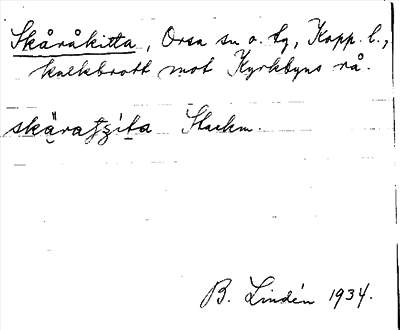 Skåråkitta, Orsa sn o. tg, Kopp. l.,
kalkbrott mot Kyrkbyns rå.
Slackm.
B. Lindén 1934.